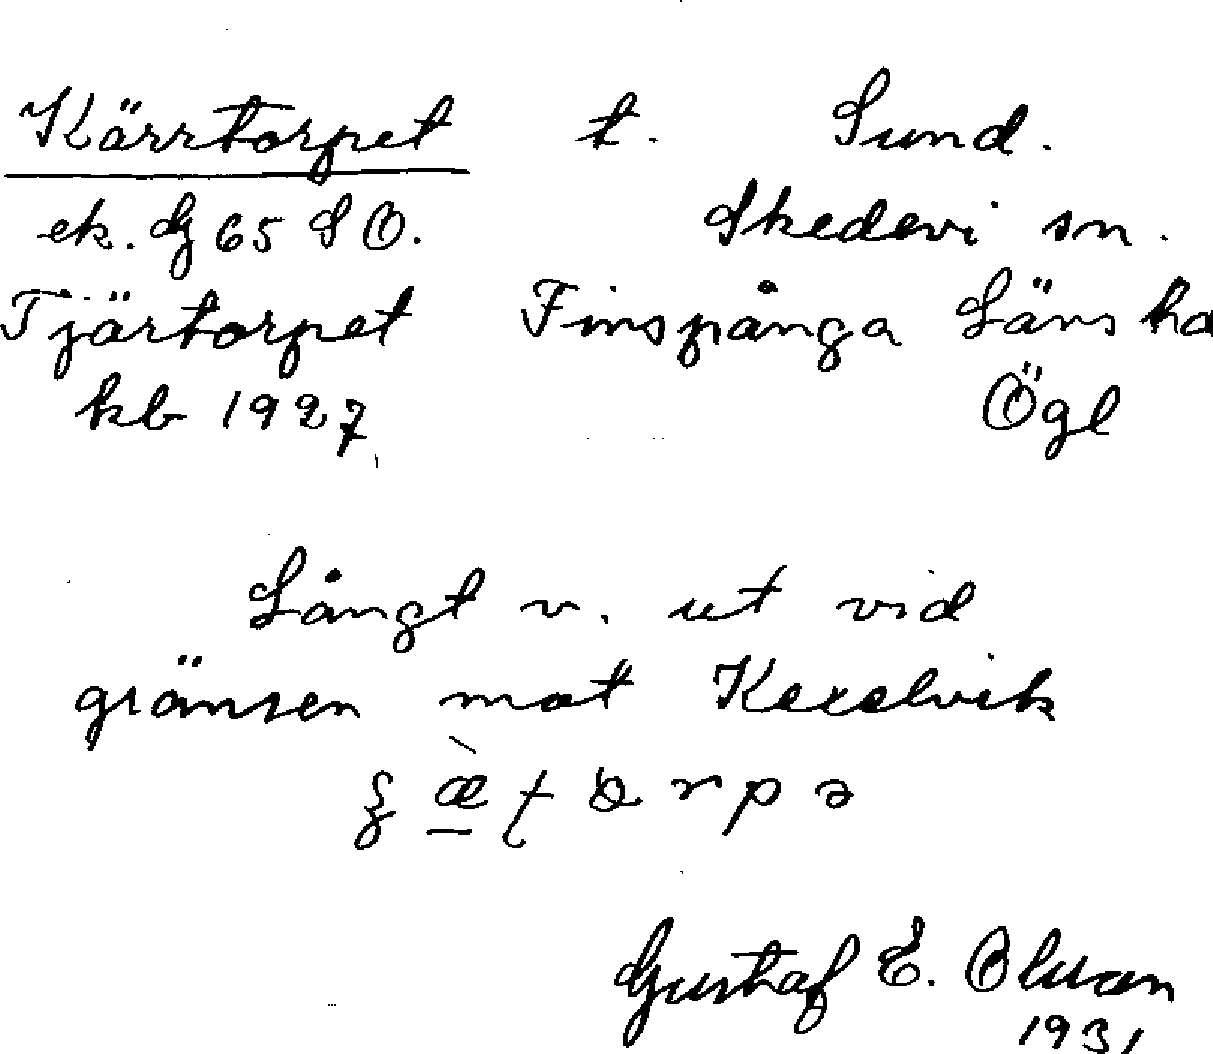 Kärrtorpet t. Sund.
ek. G 65 S O. Skedevi sn.
Tjärtorpet Finspånga Läns hd
kb 1927 Ögl
Långt v. ut vid
gränsen mot Kexelvik
Gustaf E. Olsson
1931